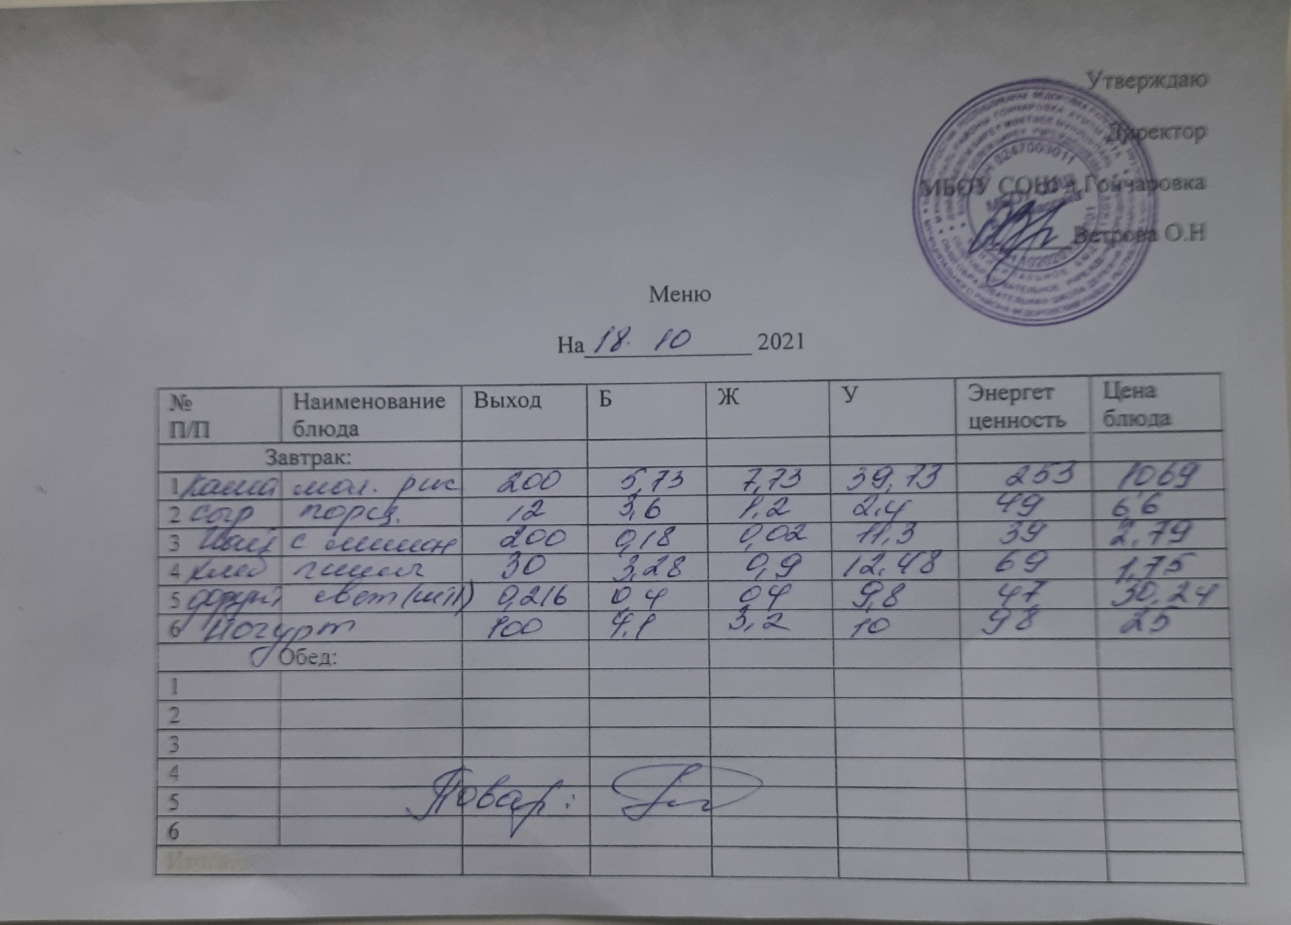 Утверждаю
Директор
МБОУ СОШ д.Гончаровка
Ветрова О.Н
Меню
На 18. 10 2021
№ П/П Наименование блюда Выход Б Ж У Энергет ценность Цена блюда
Завтрак:
1 Каша мол. рис 200 5,73 7,73 39,73 253 1069
2 сыр порц. 12 3,6 1,2 2.4 49 6,6
3 Чай с лимон 200 0,18 0,02 11,3 39 2,79
4 хлеб 30 3,28 0,9 12,48 69 1,75
5 свет(шт) 0,216 04 04 9,8 47 30,24
6 Йогурт 100 4,1 3,2 10 98 25
Обед:
1
2
3
4
5
6
Повар:
Итого: